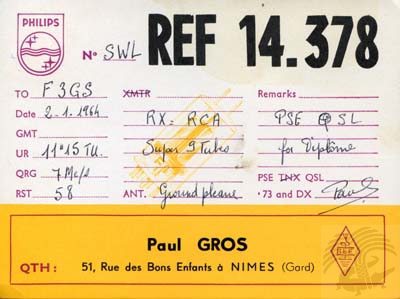 PHILIPS
N° SWL REF 14.378
TO F3GS XMTR Remarks
Date 2.1.1964 RX: RCA PSE QSL
GMT
UR 11H15 TU. Super 9 Tubes for Diplôme
QRG 7 Mc/s PSE TNX QSL
RST 58 ANT. Ground plane '73 and DX Paul
Paul GROS
QTH: 51, Rue des Bons Enfants à NIMES (Gard)